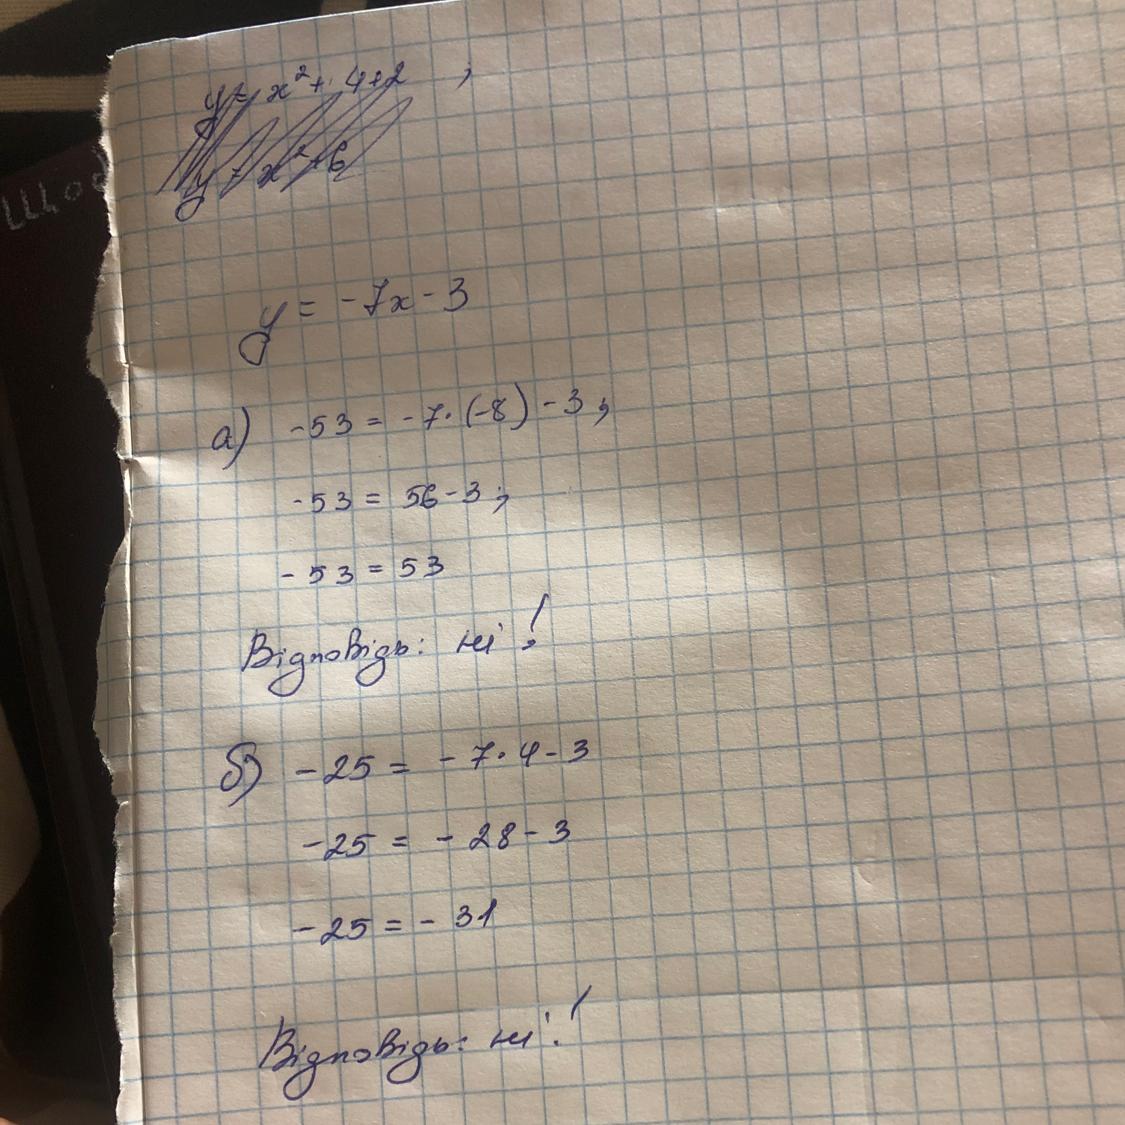 y = x² + 4 + 2 ;
y = x² + 6
Щод
y = -7x - 3
а) -53 = -7·(-8) - 3;
-53 = 56 - 3;
-53 = 53
Відповідь: ні!
б) -25 = -7·4 - 3
-25 = -28 - 3
-25 = -31
Відповідь: ні!